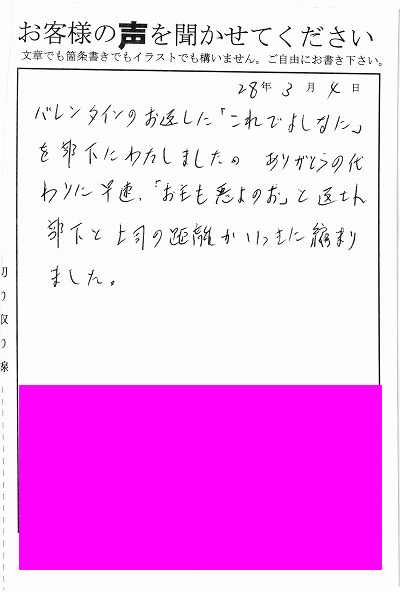 お客様の声を聞かせてください
文章でも箇条書きでもイラストでも構いません。ご自由にお書き下さい。
28年3月4日
バレンタインのお返しに「これでよしなに」
を部下にわたしました。ありがとうの代
わりに早速、「お主も悪よのお」と返され
部下と上司の距離がいっきに縮まり
ました。
切り取り線